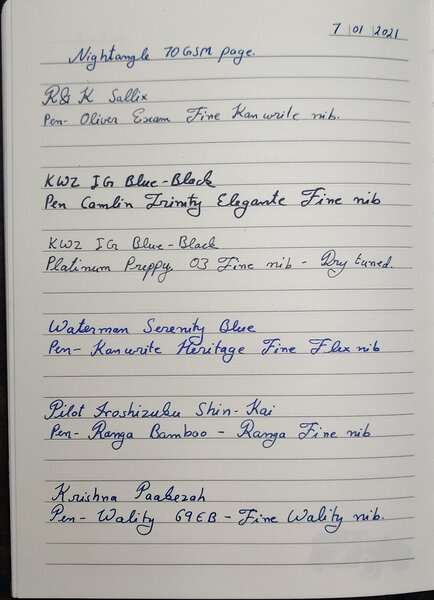 7 | 01 | 2021
Nightangle 70 GSM page.
R & K Sallix
Pen- Oliver Exam Fine Kanwrite nib.
KWZ IG Blue-Black
Pen Camlin Trinity Elegante Fine nib
KWZ IG Blue-Black
Platinum Preppy 03 Fine nib - Dry tuned.
Waterman Serenity Blue
Pen- Kanwrite Heritage Fine Flex nib
Pilot Iroshizuku Shin-Kai
Pen- Ranga Bamboo - Ranga Fine nib
Krishna Paakezah
Pen- Wality 69EB - Fine Wality nib.